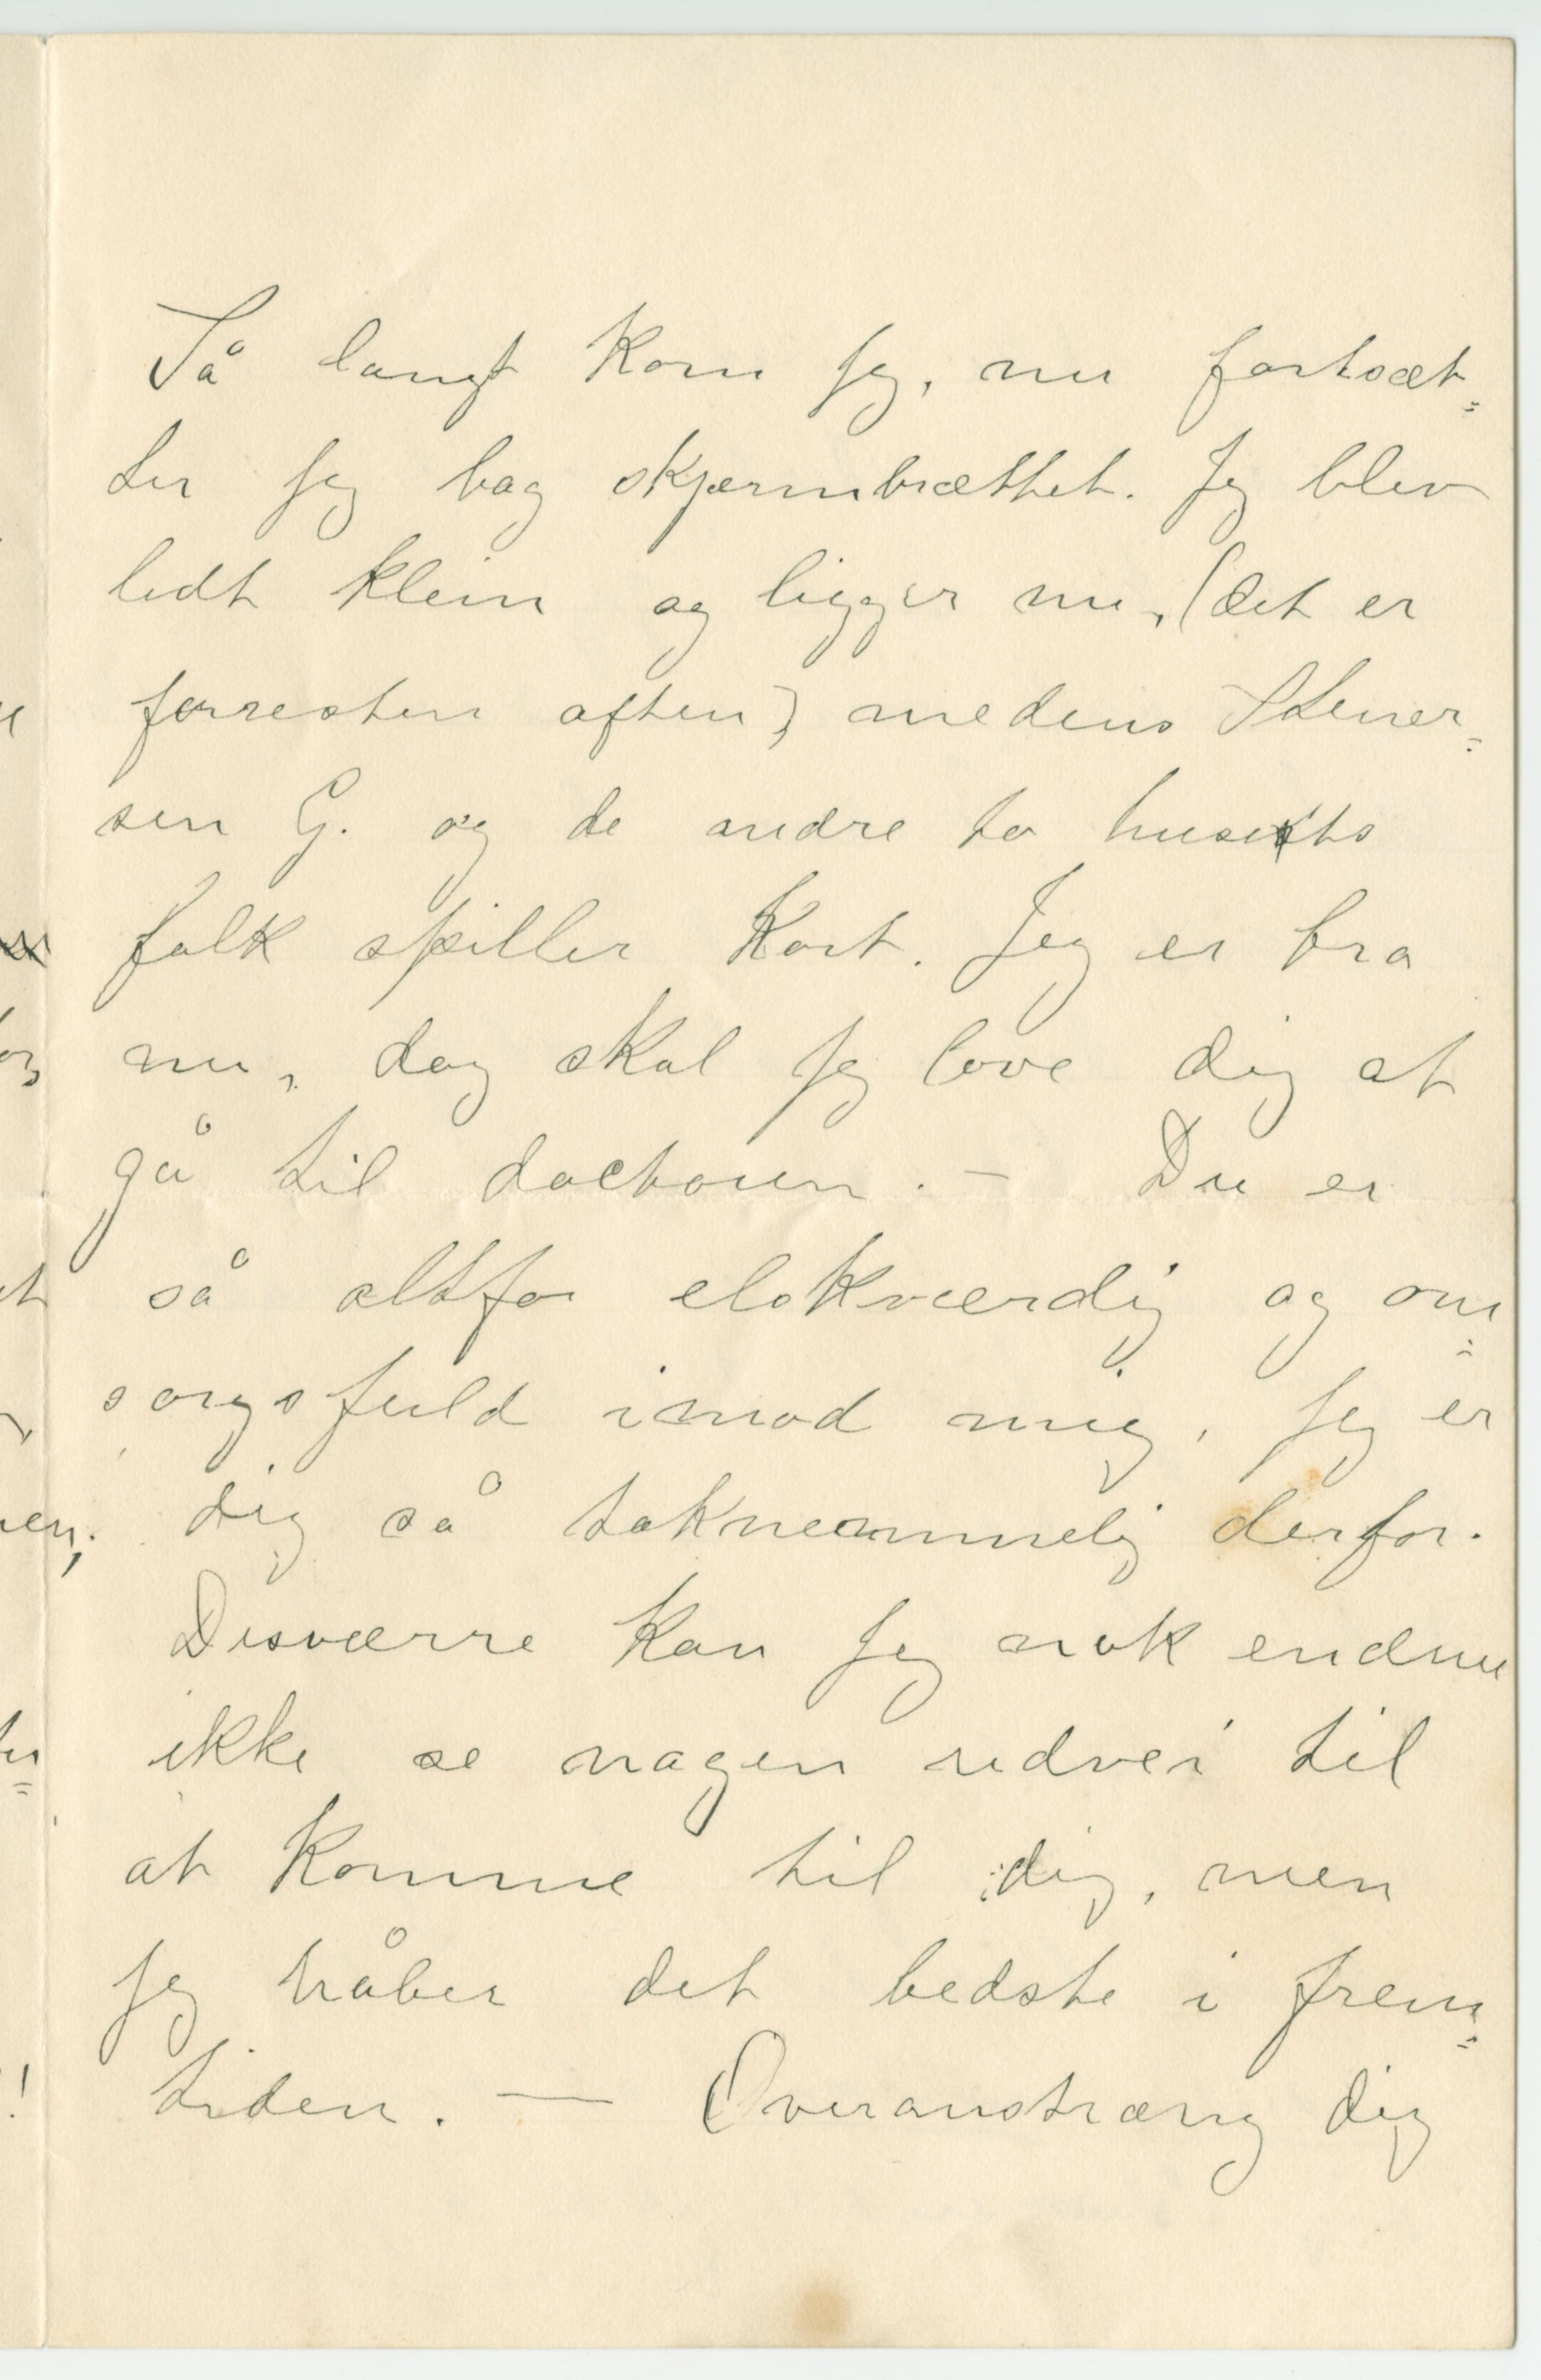 Så langt kom jeg, nu fortsæt=
ter jeg bag skjærmbrættet. Jeg blev
lidt klein og ligger nu, (det er
forresten aften) medens Stener=
sen G. og de andre to husets
folk spiller kort. Jeg er bra
nu, dog skal jeg love dig at
gå til doctoren. — Du er
så altfor elskværdig og om=
sorgsfuld imod mig, jeg er
dig så taknemmelig derfor.
Desværre kan jeg nok endnu
ikke se nogen udvei til
at komme til dig, men
jeg håber det bedste i frem=
tiden. — Overanstræng dig